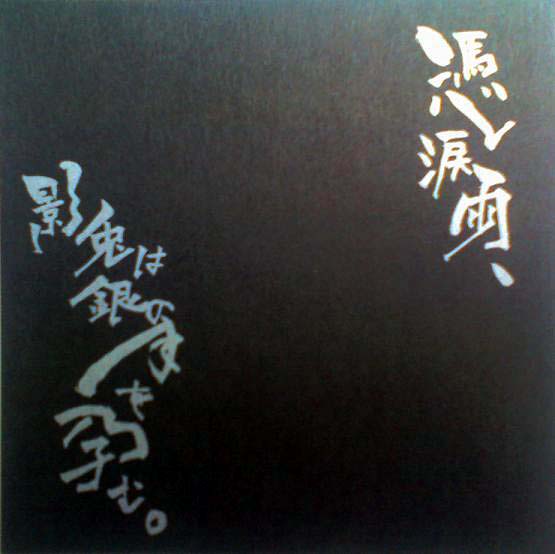 憑し涙雨、
影兎は銀の月を孕む。